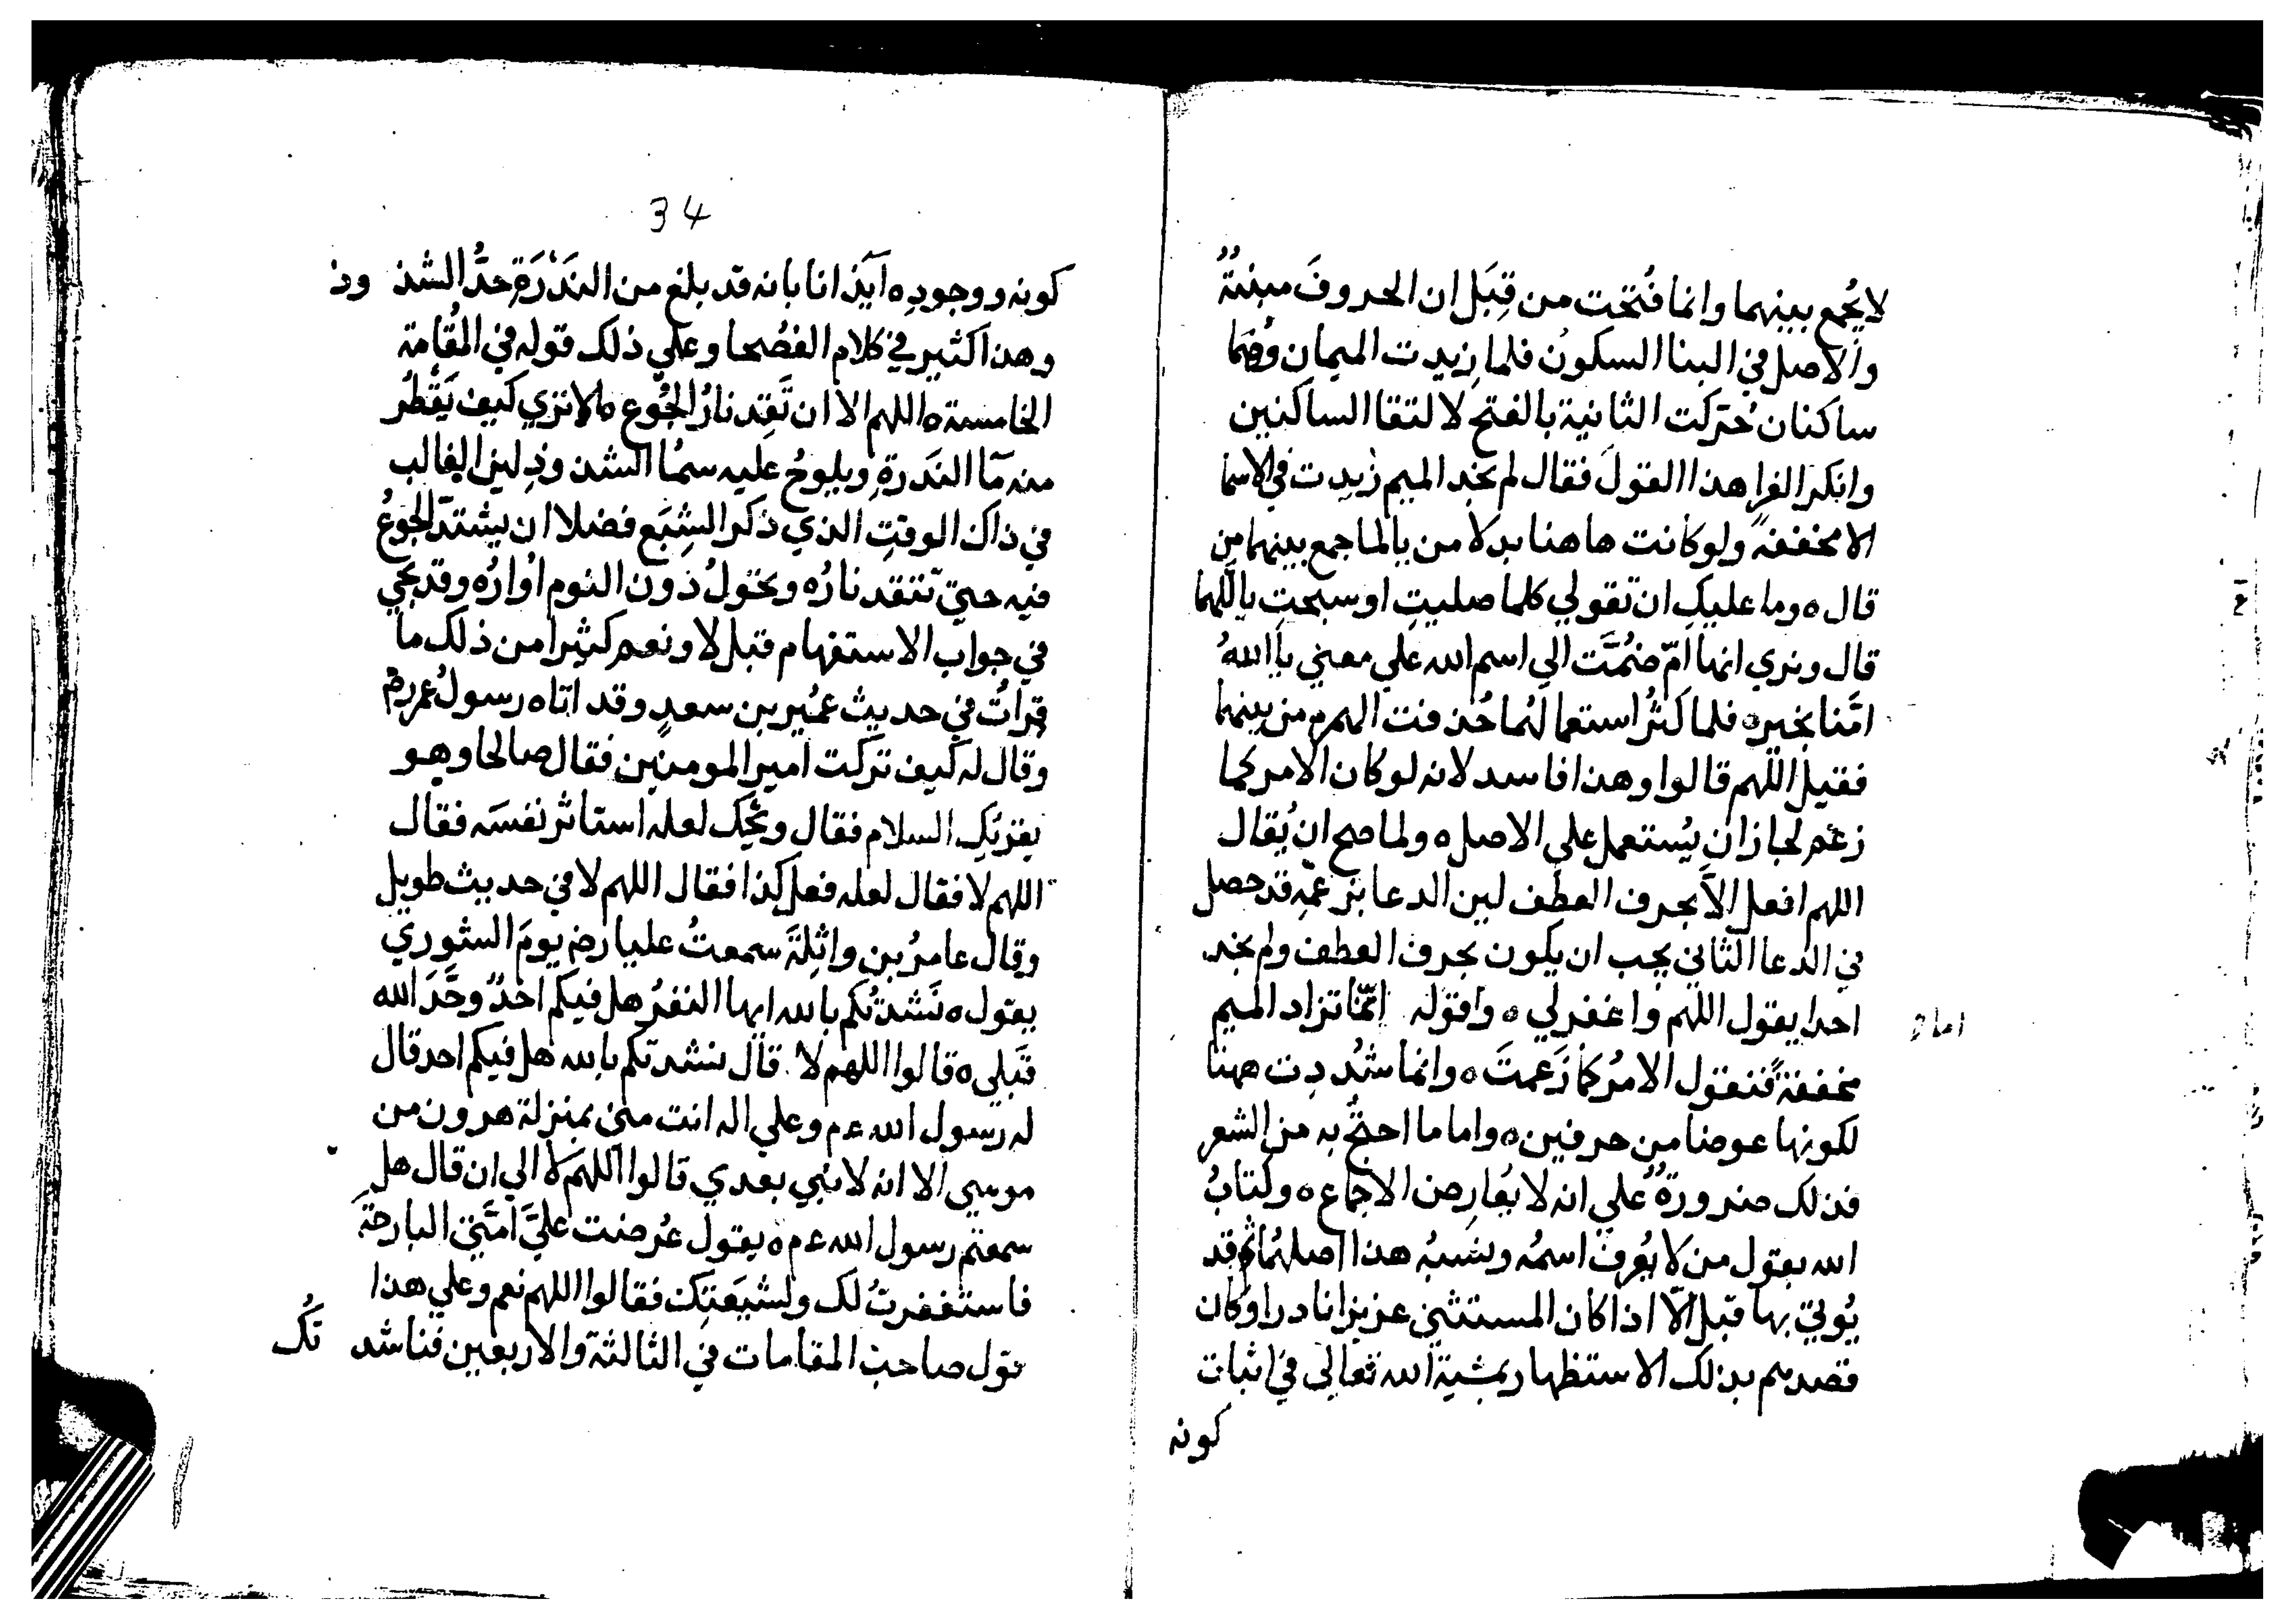 لا يُجمع بينهما وانما فُتحت من قِبَل ان الحروفَ مبنيةٌ
والاصل في البنا السكونُ فلما زيدت الميمان وهما
ساكنان حُرّكت الثانية بالفتح لالتقا الساكنين
وانكر الفرا هذا القولَ فقال لم نجد الميم زيدت في الاسما
الا مخففةً ولو كانت هاهنا بدلا من يا لما جمع بينهما من
قال ه وما عليكِ ان تقولي كلما صليتِ او سبحتِ يا اللهما
قال ونري انها امّ ضُمَّت الي اسم الله علي معني يا اللهُ
امَّنا بخير ه فلما كثُر استعمالهُما حُذفت الهمزة من بينهما
فقيل اللّهم قالوا وهذا فاسد لانه لو كان الامر كما
زعم لجاز ان يُستعمل علي الاصل ه ولما صح ان يُقال
اللهم افعل الَّا بحرف العطف لين الدعا بزعمِه قد حصل
في الدعا الثاني يجب ان يكون بحرف العطف ولم نجد
احدا يقول اللهم واغفر لي ه واقوله انّما تزاد الميم
اما
مخففةً فنقول الامرُ كما زَعمتَ ه وانما شُدِّدت ههنا
لكونها عوضا من حرفين ه واما ما احتجّ به من الشعر
فذلك ضرورةٌ علي انه لا يُعارض الاجماع ه وكتابُ
الله بقول من لا يُعرف اسمُه ونسبُه هذا اصلهُما ثم قد
يُوتي بها قبل الّا اذا كان المستثني عزيزا نادرا وكان
قصدهم بذلك الاستظهار بمشية الله تعالى في اثبات
كونه
34
كونه ووجودِه ايذانا بانه قد بلغ من النَدْرَةِ حدَّ الشذ وذ
وهذا كثير في كلام الفصُحا وعلي ذلك قوله في المُقامة
الخامسة ه اللهم الا ان تَقِد نارُ الجُوع ه الا تري كيف يَقْطُر
منه مآ النَدرةِ ويلوحُ عليه سمُا الشذوذِ لين الغالب
في ذاك الوقتِ الذي ذكر الشِبَع فضلا ان يشتدّ الجوعُ
فيه حتيّ تتقد نارُه ويحُولُ دون النوم اُوارُه وقد يجي
في جواب الاستفهام قبل لا ونعم كثيرا من ذلك ما
قراتُ في حديث عمُير بن سعدٍ وقد اتاه رسولُ عمر رض
وقال له كيف تركت امير المومنين فقال صالحا وهو
يقرئك السلام فقال ويحك لعله استاثر نفسَه فقال
اللهم لا فقال لعله فعل كذا فقال اللهم لا في حديث طويل
وقال عامرُ بن واثِلةَ سمعتُ عليا رض يومَ الشوري
يقول ه نَشدتُكم بالله ايها النفرُ هل فيكم احدٌ وحَّدَ الله
قَبلي ه قالوا اللهم لا قال نشدتكم بالله هل فيكم احد قال
له رسول الله عم وعلي اله انت مني بمنزلة هرون من
موسي الا انه لا نبي بعدي قالوا اللهم لا الي ان قال هل
سمعتم رسول الله عم ه يقول عُرضت عليَّ امَّتي البارحةَ
فاستغفرتُ لك ولشيعَتِك فقالوا اللهم نعم وعلي هذا
قول صاحب المقامات في الثالثة والاربعين فناشد تُك